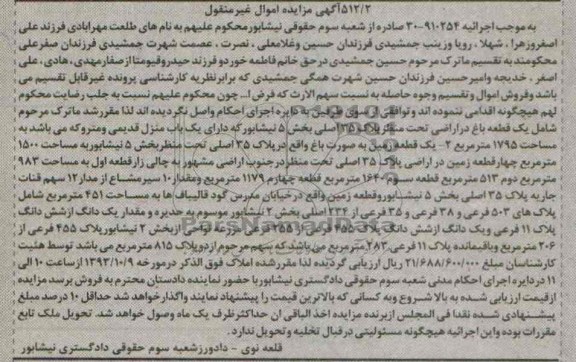 ۵۱۲/۲آگهی مزایده اموال غیرمنقول
به موجب اجرائیه ۹۱۰۲۵۴-۳۰ صادره از شعبه سوم حقوقی نیشابورمحکوم علیهم به نام های طلعت مهرابادی فرزند علی
اصغروزهرا ، شهلا ، رویا وزینب جمشیدی فرزندان حسین وغلامعلی ، نصرت ، عصمت شهرت جمشیدی فرزندان صفرعلی
محکومند به تقسیم ماترک مرحوم حسین جمشیدی در حق خانم فاطمه خوردو فرزند حیدروقیومتا ازصفارمهدی ، هادی ، علی
اصغر ، خدیجه وامیرحسین فرزندان حسین شهرت همگی جمشیدی که برابرنظریه کارشناسی پرونده غیرقابل تقسیم می
باشد وفروش اموال وتقسیم وجوه حاصله به نسبت سهم الارث که فرض ا... چون محکوم علیهم نسبت به جلب رضایت محکوم
لهم هیچگونه اقدامی ننموده اند و توافقی از سوی طرفین به دایره اجرای احکام واصل نگردیده اند لذا مقررشد ماترک مرحوم
شامل یک قطعه باغ دراراضی تحت منظرپلاک ۳۵ اصلی بخش ۵ نیشابورکه دارای یک باب منزل قدیمی ومتروکه می باشد به
مساحت ۱۷۹۵ مترمربع ۲- یک قطعه زمین به صورت باغ واقع درپلاک ۳۵ اصلی تحت منظربخش ۵ نیشابوربه مساحت ۱۵۰۰
مترمربع چهارقطعه زمین در اراضی پلاک ۳۵ اصلی تحت منظردرجنوب اراضی مشهور به چالی زار قطعه اول به مساحت ۹۸۳
مترمربع دوم ۵۱۳ مترمربع قطعه سوم ۱۶۴۰ مترمربع قطعه چهارم ۱۱۷۹ مترمربع ومقدار۱۰ سیرمشاع از مدار۱۲ سهم قنات
جاریه پلاک ۳۵ اصلی بخش ۵ نیشابوروقطعه زمین واقع درخیابان مدرس گود قالیباف ها به مساحت ۴۵۱ مترمربع شامل
پلاک های ۵۰۳ فرعی و ۳۸ فرعی و ۳۵ فرعی از ۲۳۴ اصلی بخش ۲ نیشابور موسوم به حدیره و مقدار یک دانگ ازشش دانگ
پلاک ۱۱ فرعی ویک دانگ ازشش دانگ پلاک ۴۵۵ فرعی از ۲۵۵ فرعی از بخش ۲ نیشابورپلاک ۴۵۵ فرعی از
۲۰۶ مترمربع وباقیمانده پلاک ۱۱ فرعی ۲۸۳ مترمربع می باشد که سهم مرحوم ازدوپلاک ۸۱۵ مترمربع می باشد توسط هئیت
کارشناسان مبلغ ۲۱/۶۸۸/۶۰۰/۰۰۰ ریال ارزیابی گردیده لذا مقررشده املاک فوق الذکر درمورخه ۱۳۹۳/۱۰/۹ ازساعت ۱۰ الی
۱۱ دردایره اجرای احکام مدنی شعبه سوم حقوقی دادگستری نیشابوربا حضور نماینده دادستان محترم به فروش برسد مزایده
ازقیمت ارزیابی شده به بالا شروع وبه کسانی که بالاترین قیمت را پیشنهاد نمایند واگذارخواهد شد حداقل ۱۰ درصد مبلغ
پیشنهادی شده نقدا فی المجلس ازبرنده مزایده اخذ الباقی ان حداکثرظرف یک ماه وصول خواهد شد. تحویل ملک تابع
مقررات بوده واین اجرائیه هیچگونه مسئولیتی درقبال تخلیه و تحویل ندارد .
قلعه نوی - دادورزشعبه سوم حقوقی دادگستری نیشابور